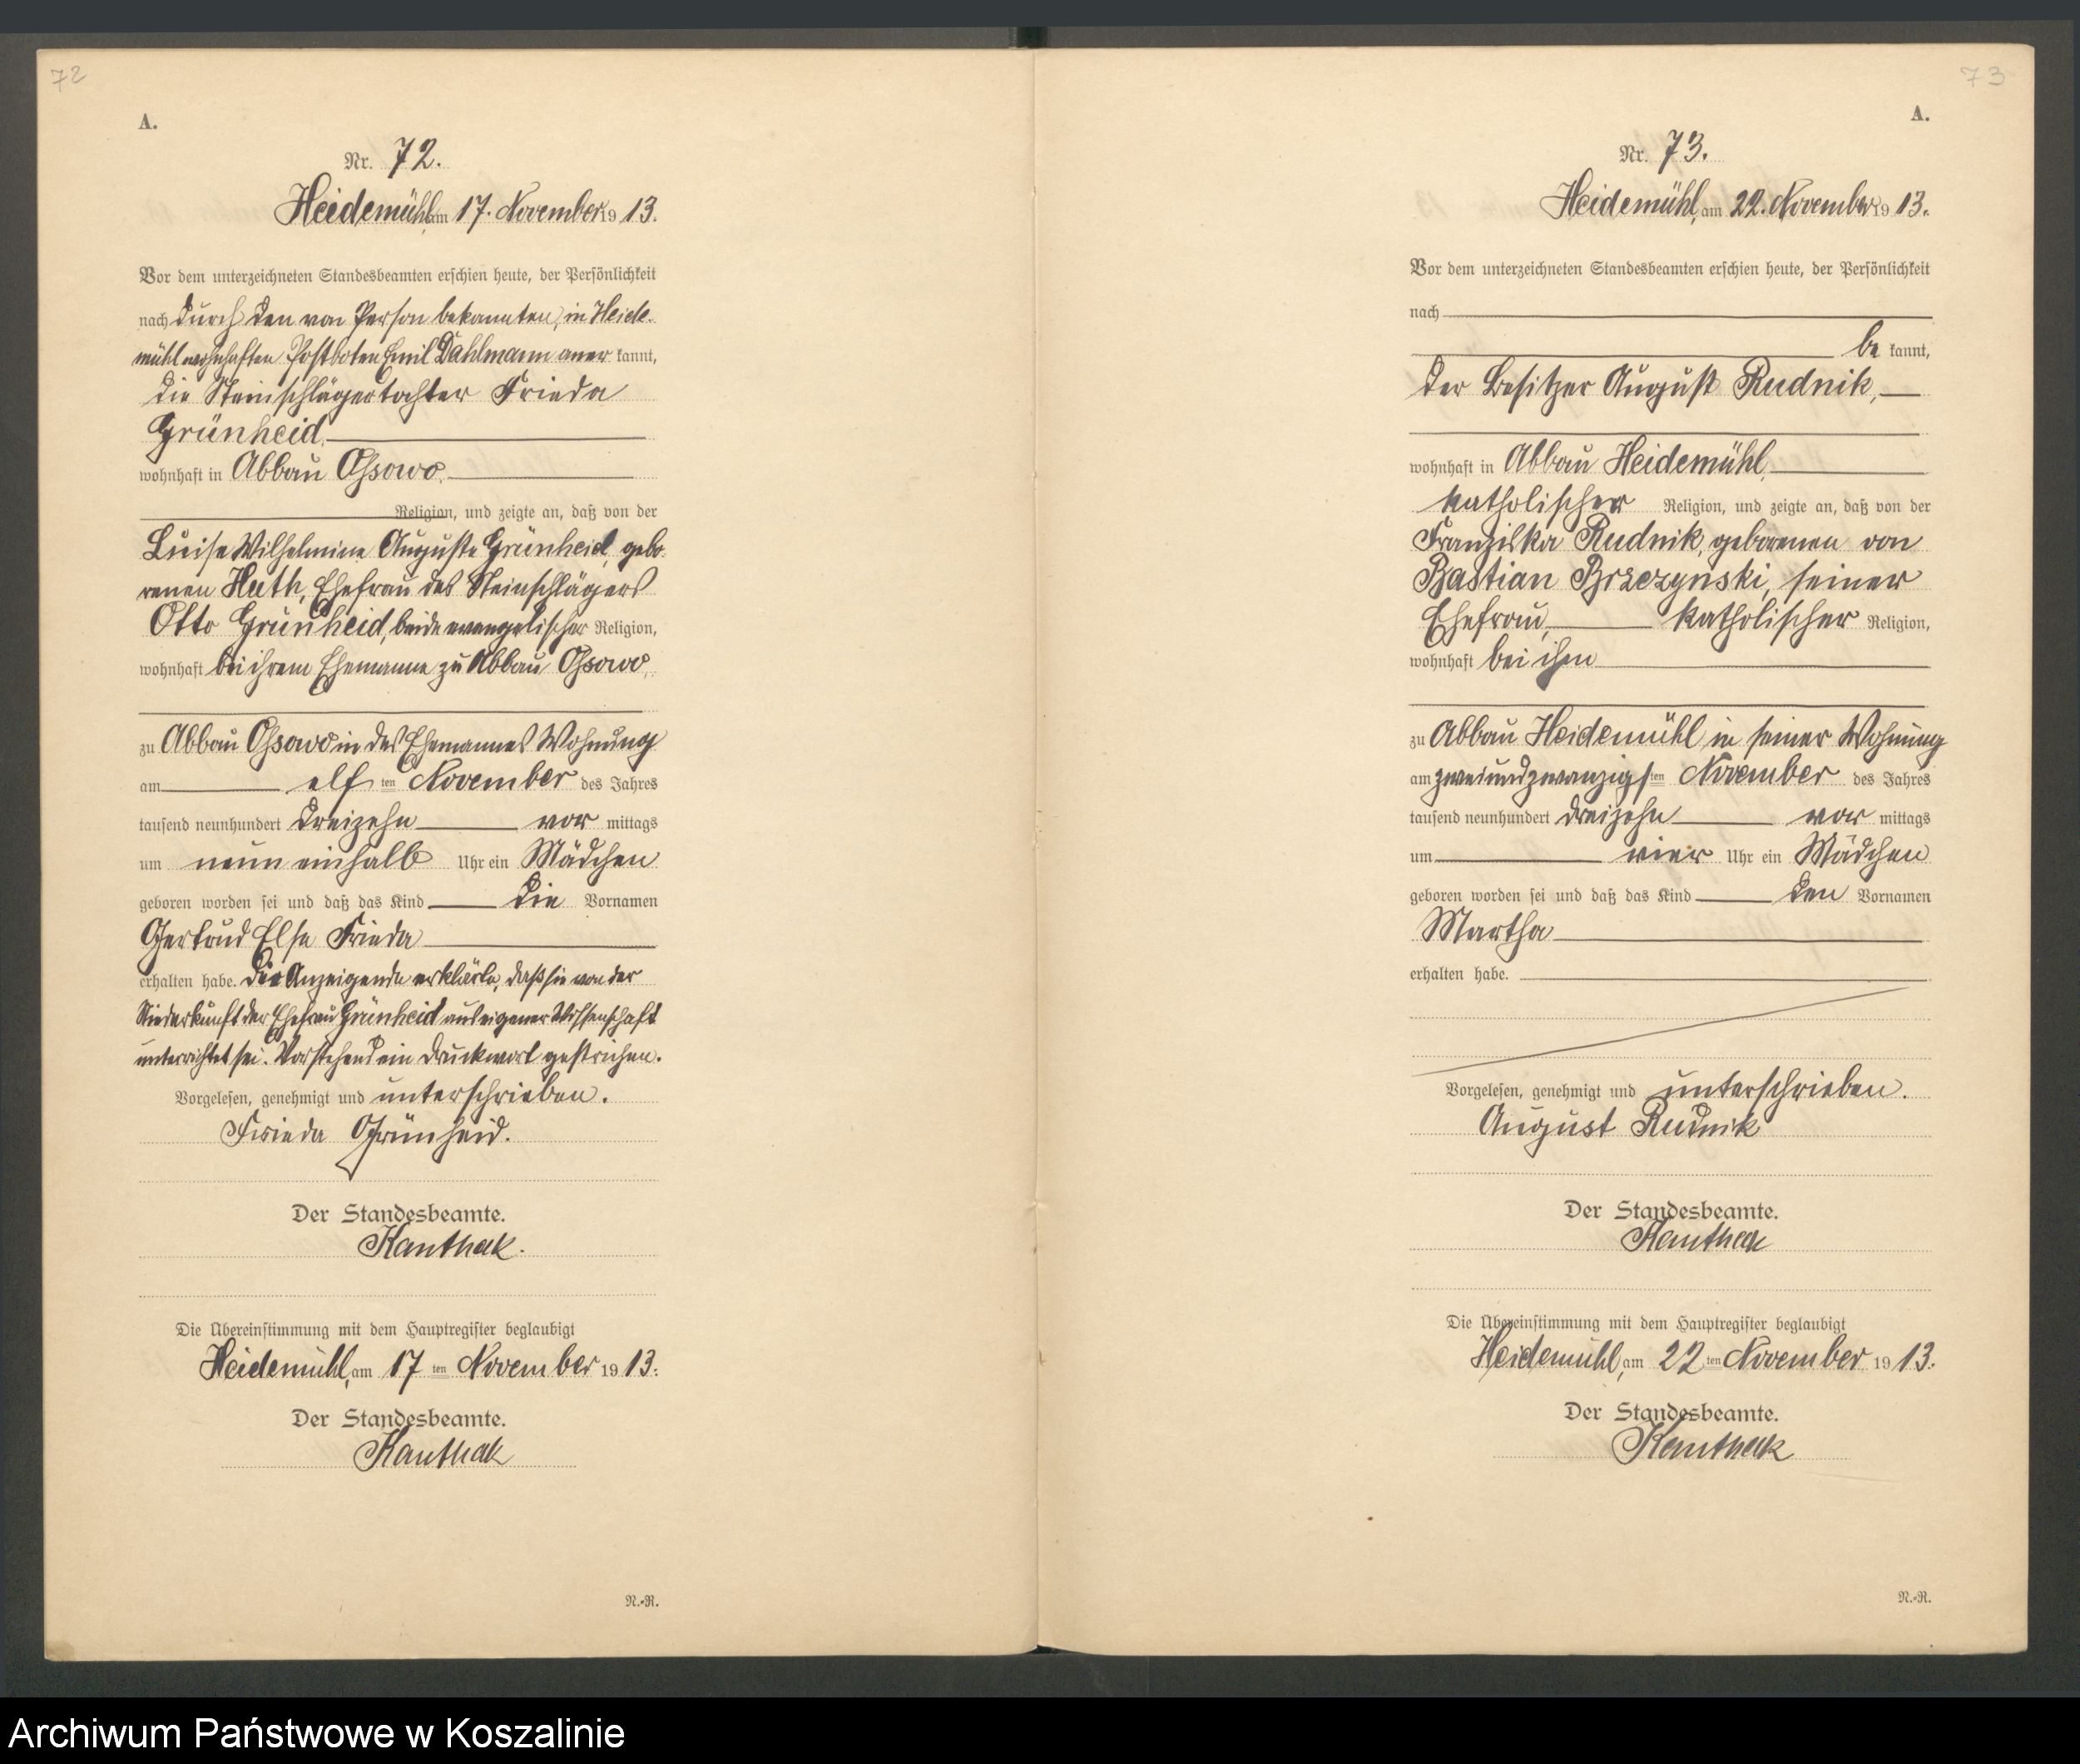 72
A.
Nr. 72.
Heidemühl, am 17. November 1913.
Vor dem unterzeichneten Standesbeamten erschien heute, der Persönlichkeit
nach durch den von Person bekannten, in Heide-
mühl wohnhaften Postboten Emil Dahlmann anerkannt,
die Steinschlägertochter Frieda
Grünheid,
wohnhaft in Abbau Ossowo,
Religion, und zeigte an, daß von der
Luise Wilhelmine Auguste Grünheid, gebo-
renen Huth, Ehefrau des Steinschlägers
Otto Grünheid, beide evangelischer Religion,
wohnhaft bei ihrem Ehemanne zu Abbau Ossowo,
zu Abbau Ossowo in des Ehemannes Wohnung
am elften November des Jahres
tausend neunhundert dreizehn vormittags
um neun einhalb Uhr ein Mädchen
geboren worden sei und daß das Kind die Vornamen
Gertrud Else Frieda
erhalten habe. Die Anzeigende erklärte, daß sie von der
Niederkunft der Ehefrau Grünheid aus eigener Wissenschaft
unterrichtet sei. Vorstehend ein Druckwort gestrichen.
Vorgelesen, genehmigt und unterschrieben.
Frieda Grünheid.
Der Standesbeamte.
Kanthak.
Die Übereinstimmung mit dem Hauptregister beglaubigt
Heidemühl, am 17ten November 1913.
Der Standesbeamte.
Kanthak
N.-R.
73
A.
Nr. 73.
Heidemühl, am 22. November 1913.
Vor dem unterzeichneten Standesbeamten erschien heute, der Persönlichkeit
nach
bekannt,
der Besitzer August Rudnik,
wohnhaft in Abbau Heidemühl,
katholischer Religion, und zeigte an, daß von der
Franziska Rudnik, geborenen von
Bastian Brzezynski, seiner
Ehefrau, katholischer Religion,
wohnhaft bei ihm
zu Abbau Heidemühl in seiner Wohnung
am zweiundzwanzigsten November des Jahres
tausend neunhundert dreizehn vormittags
um vier Uhr ein Mädchen
geboren worden sei und daß das Kind den Vornamen
Martha
erhalten habe.
Vorgelesen, genehmigt und unterschrieben.
August Rudnik
Der Standesbeamte.
Kanthak
Die Übereinstimmung mit dem Hauptregister beglaubigt
Heidemühl, am 22ten November 1913.
Der Standesbeamte.
Kanthak
N.-R.
Archiwum Państwowe w Koszalinie